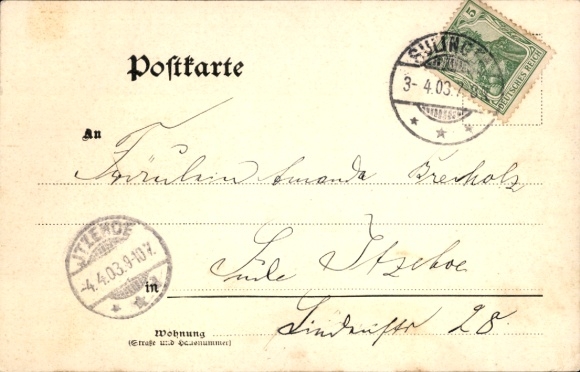 5
DEUTSCHES REICH
SULING
3- 4.03.7-8
Postkarte
An
Fräulein Amanda Brekholz
ITZEHOE
-4.4.03.9-10V.
in
Itzehoe
28.
Wohnung
(Straße und Hausnummer)